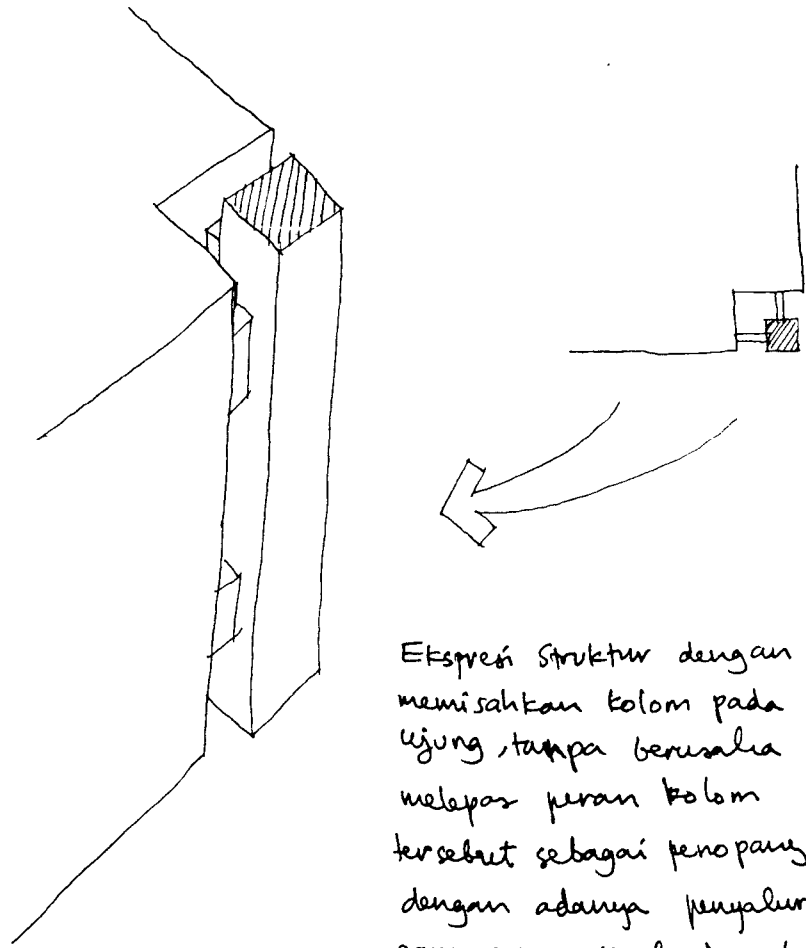 Ekspresi Struktur dengan
memisahkan kolom pada
ujung, tanpa berusaha
melepas peran kolom
tersebut sebagai penopang
dengan adanya penyalur